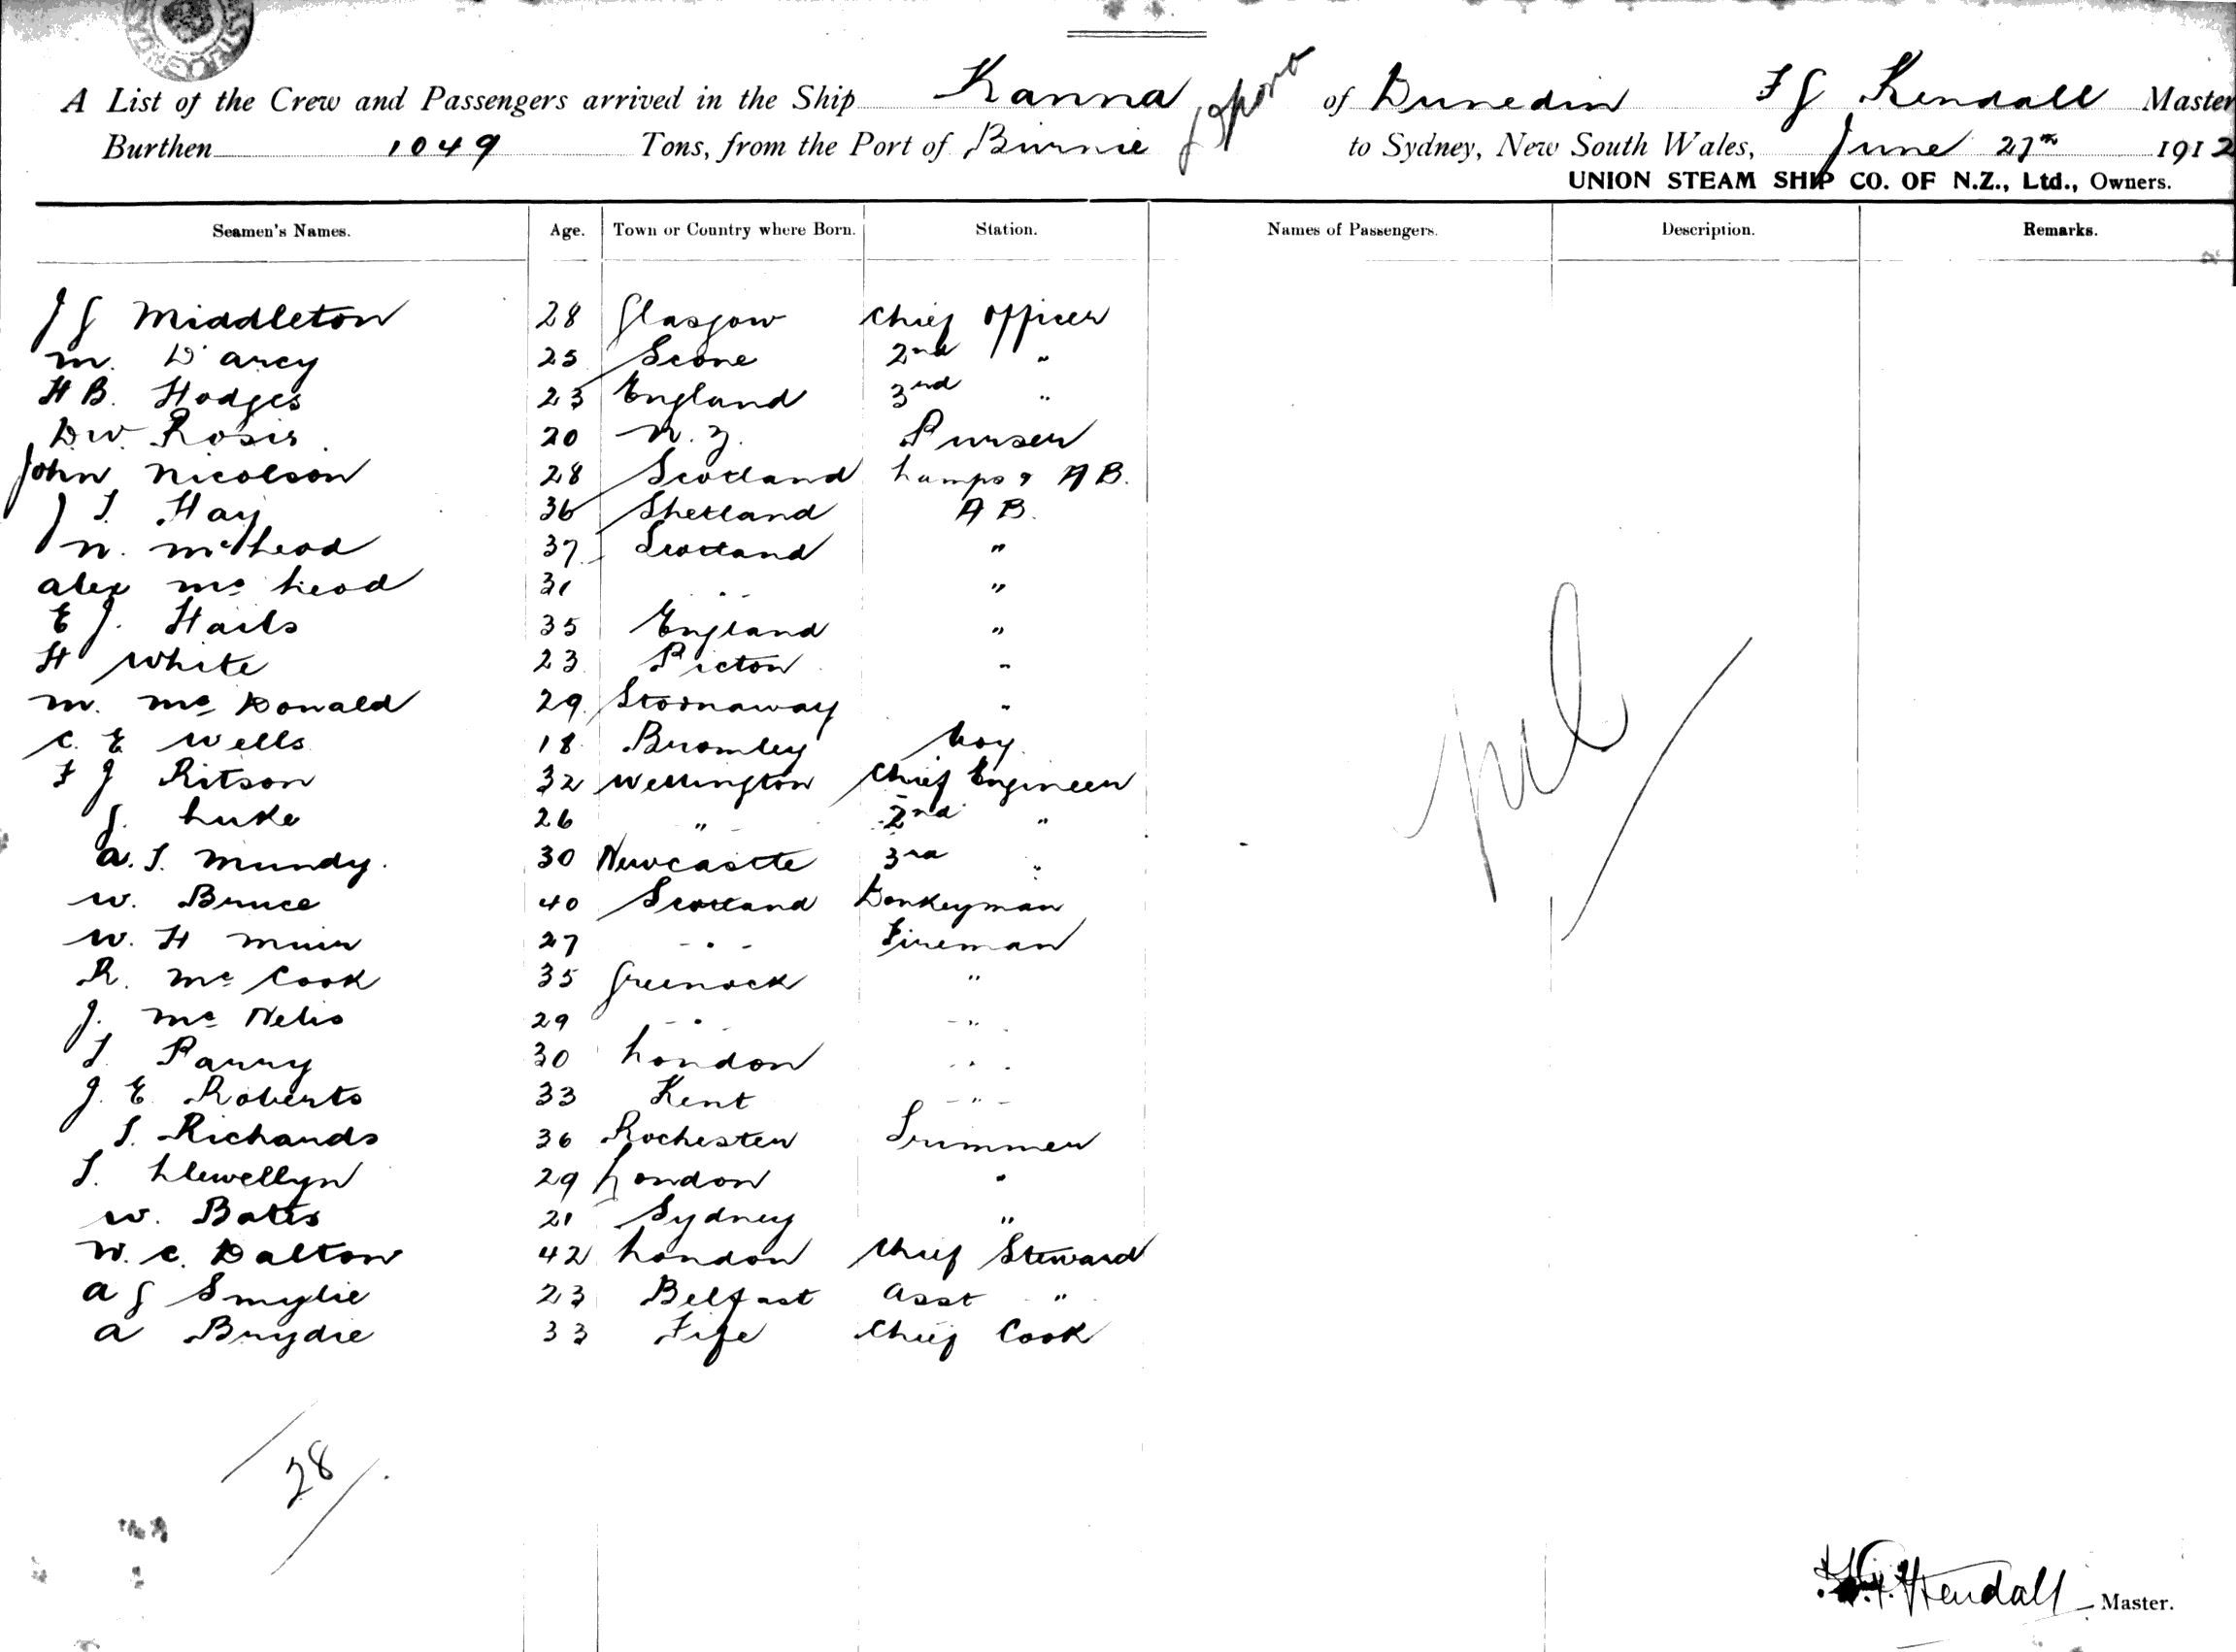 A List of the Crew and Passengers arrived in the Ship Kanna of Dunedin F G Kendall Master
Burthen 1049 Tons, from the Port of Burnie to Sydney, New South Wales, June 27th 1912
UNION STEAM SHIP CO. OF N.Z., Ltd., Owners.
Seamen's Names. Age. Town or Country where Born. Station. Names of Passengers. Description. Remarks.
J G Middleton 28 Glasgow Chief Officer
M. D'Arcy 25 Scone 2nd "
H B. Hodges 23 England 3rd "
D W. Rosir 20 N. Z. Purser
John Nicolson 28 Scotland Lamps & A B.
J T. Hay 36 Shetland A B.
N. McLeod 37 Scotland "
Alex Mc Leod 31 " "
E J. Hails 35 England "
H White 23 Picton "
M. Mc Donald 29 Stornaway "
C. E Wells 18 Bromley Boy
F J Ritson 32 Wellington Chief Engineer
G. Luke 26 " 2nd "
A. T. Mundy. 30 Newcastle 3rd "
W. Bruce 40 Scotland Donkeyman
W. H Muir 27 " Fireman
R. Mc Cook 35 Greenock "
J. Mc Nelis 29 " "
T. Parry 30 London "
J. E Roberts 33 Kent "
T. Richards 36 Rochester Trimmer
T. Llewellyn 29 London "
W. Bates 21 Sydney "
W. C. Dalton 42 London Chief Steward
A G Smylie 23 Belfast Asst "
A Brydie 33 Fife Chief Cook
nil
28
Kendall Master.